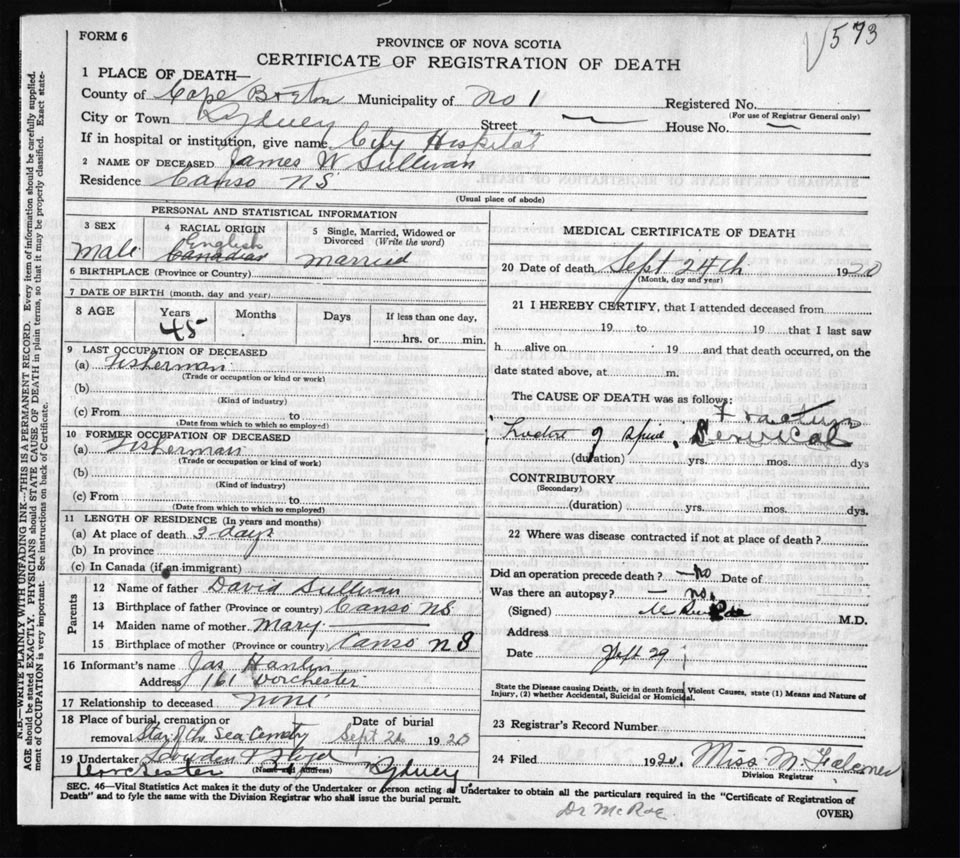 573
FORM 6
PROVINCE OF NOVA SCOTIA
CERTIFICATE OF REGISTRATION OF DEATH
1 PLACE OF DEATH—
County of Cape Breton Municipality of No 1 Registered No.
(For use of Registrar General only)
City or Town Sydney Street — House No. —
If in hospital or institution, give name City Hospital
2 NAME OF DECEASED James W Sullivan
Residence Canso NS
(Usual place of abode)
PERSONAL AND STATISTICAL INFORMATION
3 SEX 4 RACIAL ORIGIN 5 Single, Married, Widowed or Divorced (Write the word)
Male English Canadian Married
6 BIRTHPLACE (Province or Country)
7 DATE OF BIRTH (month, day and year)
8 AGE Years Months Days If less than one day,
45 hrs. or min.
9 LAST OCCUPATION OF DECEASED
(a) Fisherman
(Trade or occupation or kind or work)
(b)
(Kind of industry)
(c) From to
(Date from which to which so employed)
10 FORMER OCCUPATION OF DECEASED
(a) Fisherman
(Trade or occupation or kind of work)
(b)
(Kind of industry)
(c) From to
(Date from which to which so employed)
11 LENGTH OF RESIDENCE (In years and months)
(a) At place of death 3 days
(b) In province
(c) In Canada (if an immigrant)
Parents
12 Name of father David Sullivan
13 Birthplace of father (Province or country) Canso NS
14 Maiden name of mother Mary
15 Birthplace of mother (Province or country) Canso NS
16 Informant's name Jas Hanlin
Address 161 Dorchester
17 Relationship to deceased None
18 Place of burial, cremation or removal Date of burial
Star of the Sea Cemetry Sept 26 1920
19 Undertaker
(Name and address)
Dorchester Sydney
MEDICAL CERTIFICATE OF DEATH
20 Date of death Sept 24th 1920
(Month, day and year)
21 I HEREBY CERTIFY, that I attended deceased from
19 to 19 that I last saw
h alive on 19 and that death occurred, on the
date stated above, at m.
The CAUSE OF DEATH was as follows:
Fracture
of Spine. Cervical
(duration) yrs. mos. dys
CONTRIBUTORY
(Secondary)
(duration) yrs. mos. dys.
22 Where was disease contracted if not at place of death?
Did an operation precede death? — No Date of
Was there an autopsy? — no.
(Signed) M.D.
Address
Date Sept 29
State the Disease causing Death, or in death from Violent Causes, state (1) Means and Nature of
Injury, (2) whether Accidental, Suicidal or Homicidal.
23 Registrar's Record Number
24 Filed 1920. Miss M. Falconer
Division Registrar
SEC. 46—Vital Statistics Act makes it the duty of the Undertaker or person acting as Undertaker to obtain all the particulars required in the "Certificate of Registration of
Death" and to fyle the same with the Division Registrar who shall issue the burial permit.
(OVER)
Dr McRae
N.B.—WRITE PLAINLY WITH UNFADING INK—THIS IS A PERMANENT RECORD. Every item of information should be carefully supplied.
AGE should be stated EXACTLY. PHYSICIANS should STATE CAUSE OF DEATH in plain terms, so that it may be properly classified. Exact state-
ment of OCCUPATION is very important. See instructions on back of Certificate.